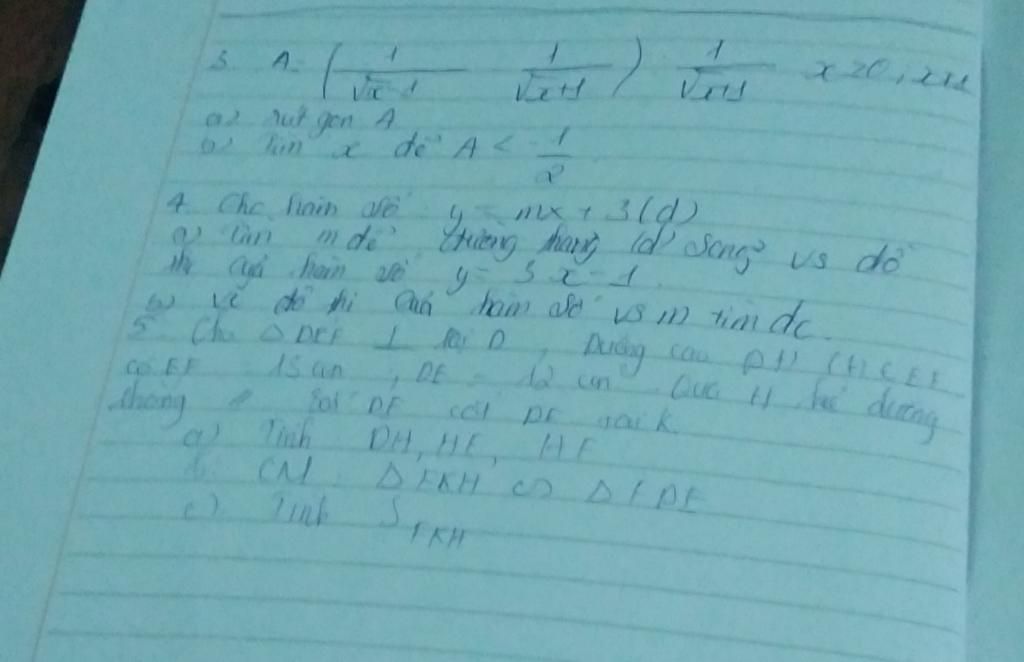 3. A = ( 1/√x-1   1/√x+1 ) 1/√x+1 x≥0, x≠1
a) rút gọn A
b) Tìm x để A < 1/2
4. Cho hàm số y = mx + 3 (d)
a) tìm m để đường thẳng (d) song² vs đồ
thị của hàm số y = 3x - 1.
b) vẽ đồ thị của hàm số vs m tìm dc.
5. Cho △DEF ⊥ tại D, Đường cao DH (H ∈ EF
có EF = 15 cm, DE = 12 cm Qua H kẻ đường
thẳng DE cắt DF tại K
a) Tính DH, HE, HF
b. CM △FKH ∽ △FDE
c) Tính S FKH